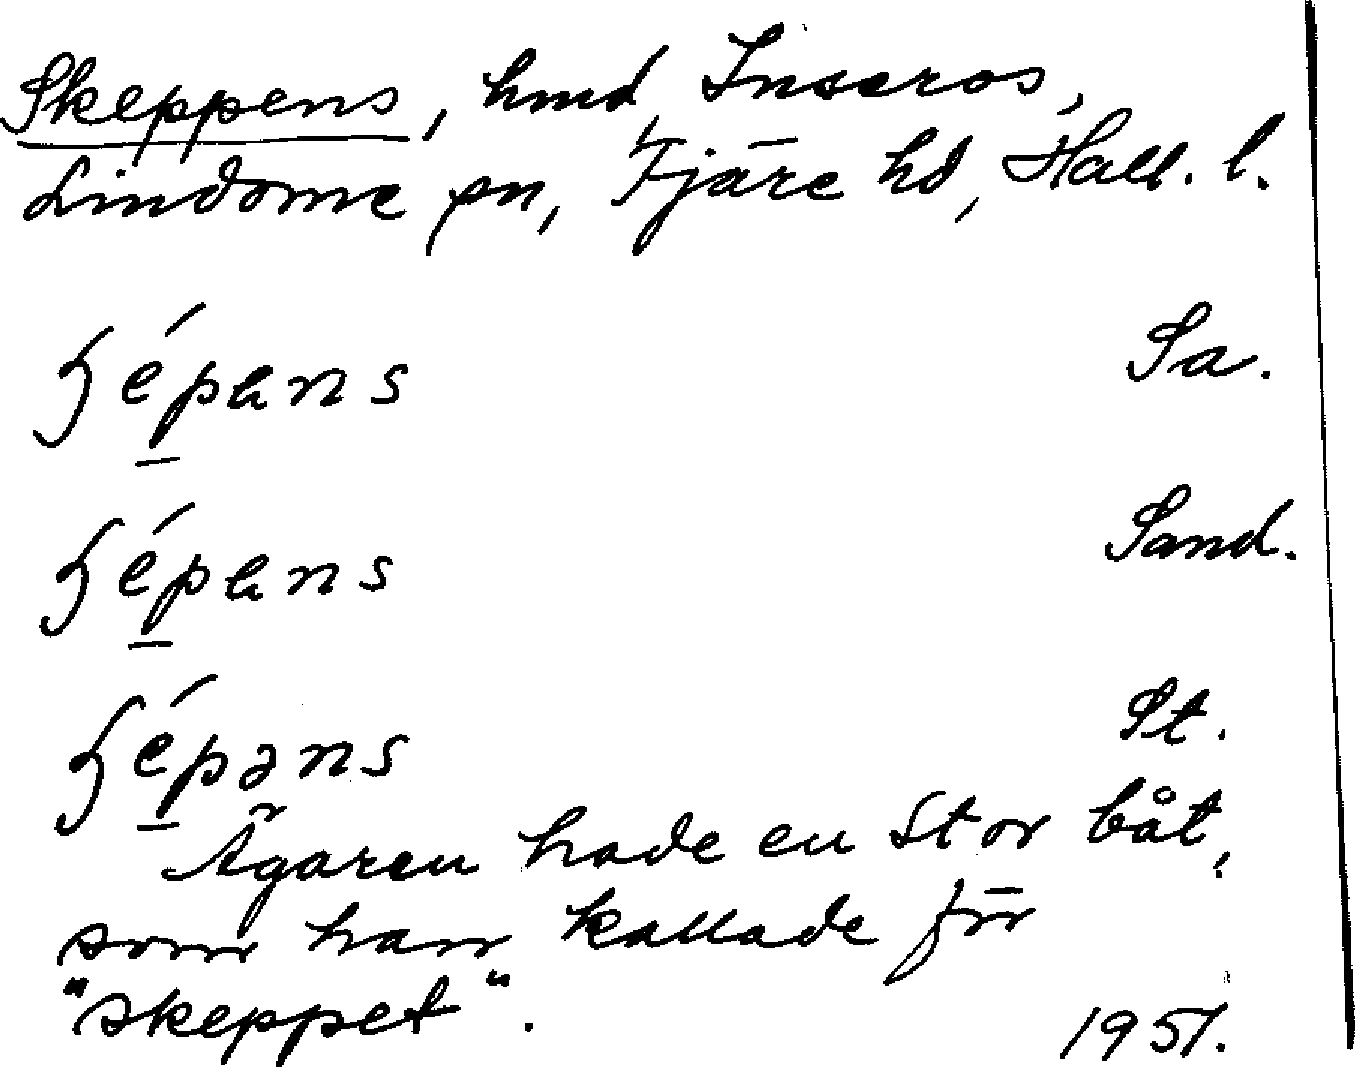 Skeppens, hmd Inseros,
Lindome sn, Fjäre hd, Hall. l.
Sa.
Sand.
St.
Ägaren hade en stor båt,
som han kallade för
"skeppet".
1951.